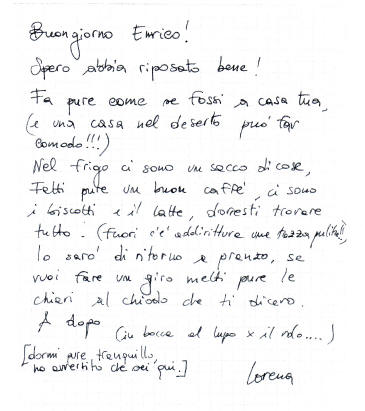 Buongiorno Enrico!
Spero abbia riposato bene!
Fa pure come se fossi a casa tua,
(e una casa nel deserto può far
comodo!!!)
Nel frigo ci sono un sacco di cose,
Fatti pure un buon caffè, ci sono
i biscotti e il latte, dovresti trovare
tutto. (fuori c'è addirittura una tazza pulita!!),
Io sarò di ritorno a pranzo, se
vuoi fare un giro metti pure le
chiavi al chiodo che ti dicevo.
A dopo (in bocca al lupo x il volo....)
[dormi pure tranquillo,
ho avvertito che sei qui.]
Lorena